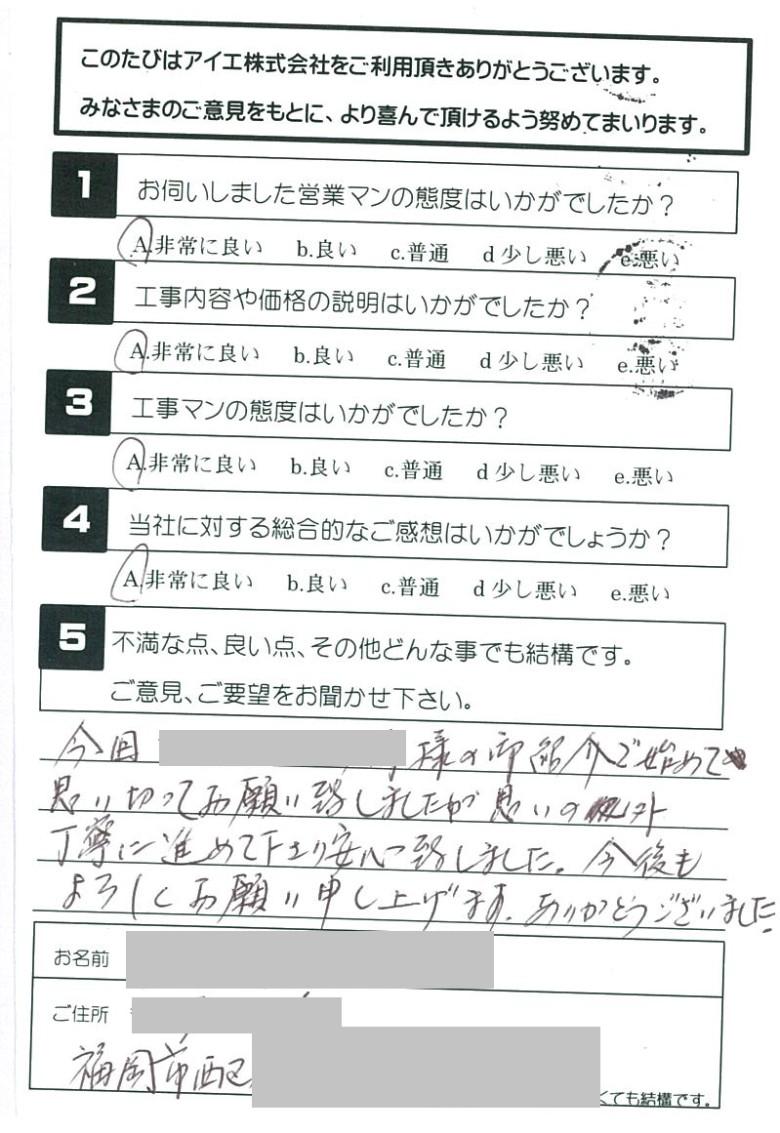 このたびはアイエ株式会社をご利用頂きありがとうございます。
みなさまのご意見をもとに、より喜んで頂けるよう努めてまいります。
1 お伺いしました営業マンの態度はいかがでしたか？
A.非常に良い b.良い c.普通 d 少し悪い e.悪い
2 工事内容や価格の説明はいかがでしたか？
A.非常に良い b.良い c.普通 d 少し悪い e.悪い
3 工事マンの態度はいかがでしたか？
A.非常に良い b.良い c.普通 d 少し悪い e.悪い
4 当社に対する総合的なご感想はいかがでしょうか？
A.非常に良い b.良い c.普通 d 少し悪い e.悪い
5 不満な点、良い点、その他どんな事でも結構です。
ご意見、ご要望をお聞かせ下さい。
今回 様の御紹介で始めて
思い切ってお願い致しましたが思いの外
丁寧に進めて下さり安心致しました。今後も
よろしくお願い申し上げます。ありがとうございました
お名前
ご住所
福岡市西区
くても結構です。